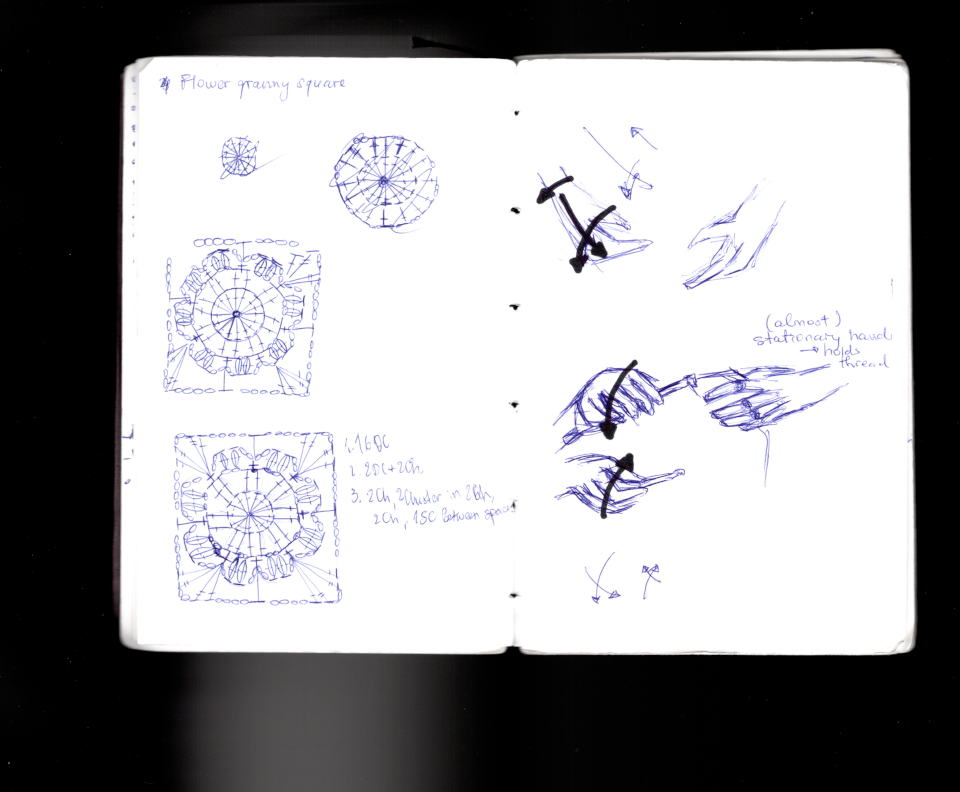 Flower granny square
1. 16DC
2. 2DC+2Ch
3. 2Ch, 2Cluster in 2Ch,
2Ch, 1SC between spaces
(almost)
stationary hand
→ holds
thread